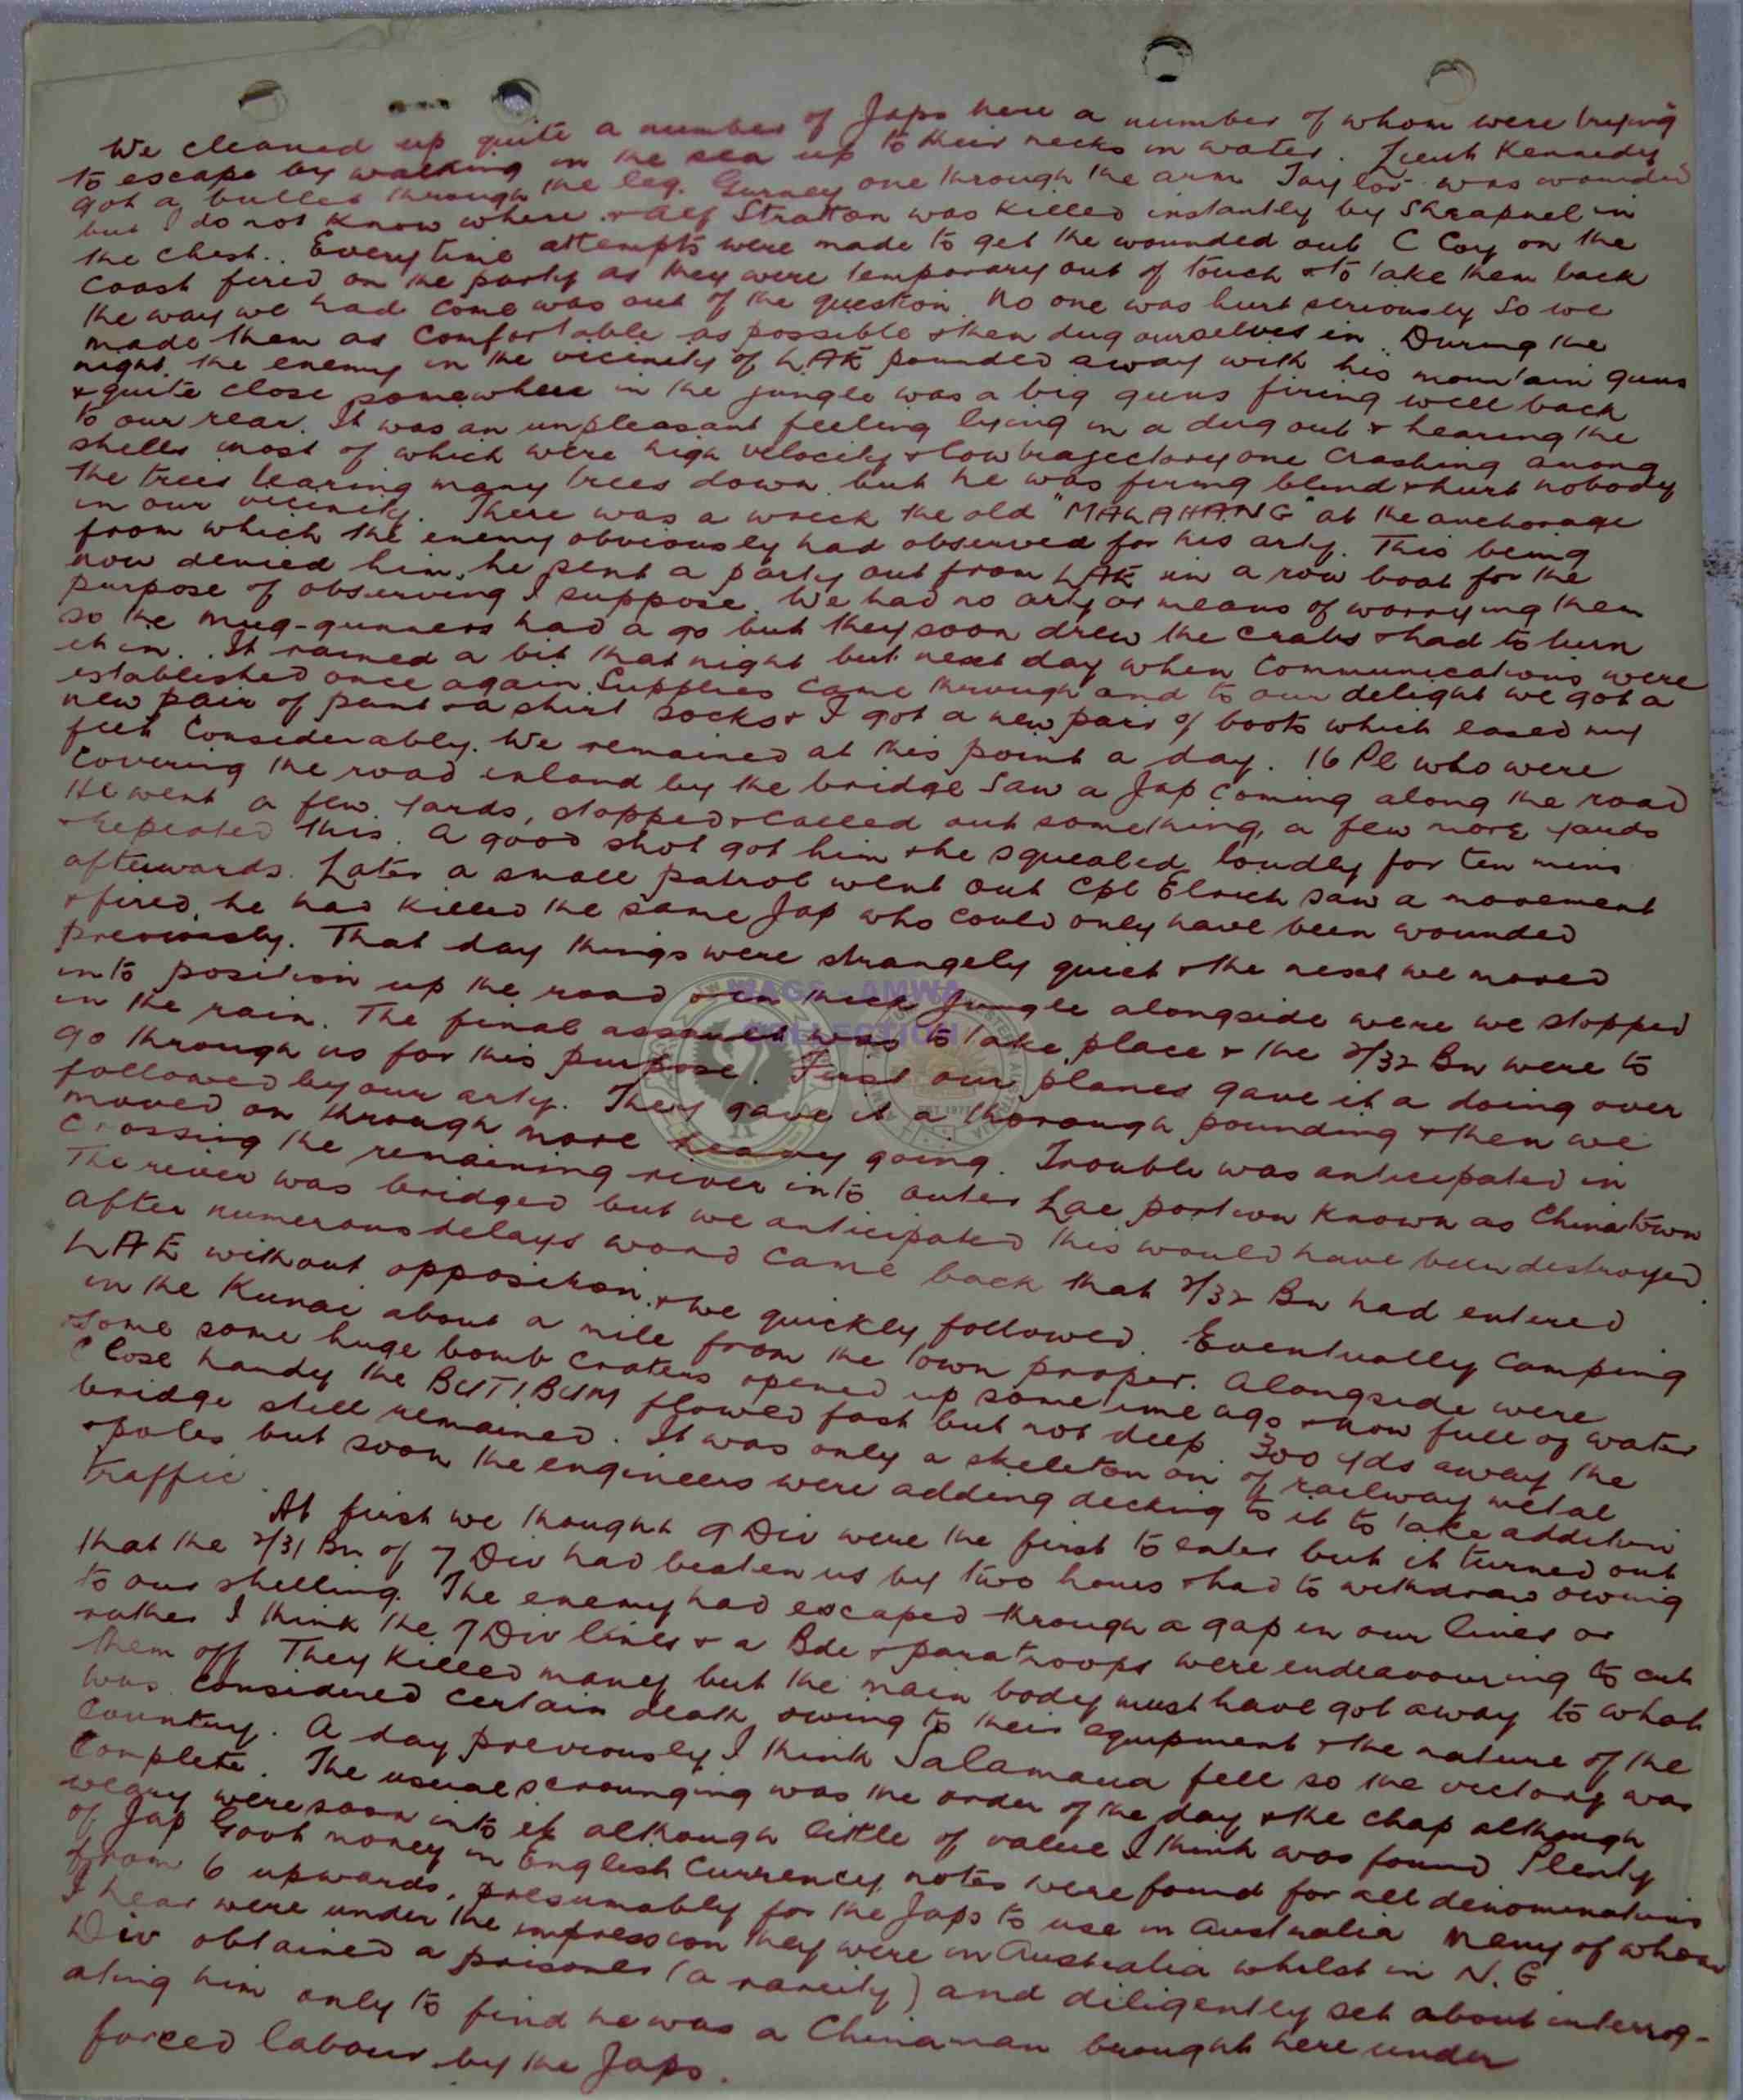 We cleaned up quite a number of Japs here a number of whom were trying
to escape by walking in the sea up to their necks in water. Lieut Kennedy
got a bullet through the leg. Gurney one through the arm Taylor was wounded
but I do not know where & Alf Stratton was killed instantly by shrapnel in
the chest.. Every time attempts were made to get the wounded out C Coy on the
coast fired on the party as they were temporary out of touch & to take them back
the way we had come was out of the question. No one was hurt seriously so we
made them as comfortable as possible & then dug ourselves in. During the
night the enemy in the vicinety of LAE pounded away with his mountain guns
& quite close somewhere in the jungle was a big guns firing well back
to our rear. It was an unpleasant feeling lying in a dug out & hearing the
shells most of which were high velocity & low trajectory one crashing among
the trees tearing many trees down but he was firing blind & hurt nobody
in our vicinity. There was a wreck the old "MALAHANG" at the anchorage
from which the enemy obviously had observed for his arty. This being
now denied him, he sent a party out from LAE in a row boat for the
purpose of observing I suppose. We had no arty or means of worrying them
so the mug-gunners had a go but they soon drew the crabs & had to turn
it in. It rained a bit that night but next day when communications were
established once again supplies came through and to our delight we got a
new pair of pants & a shirt socks & I got a new pair of boots which eased my
feet considerably. We remained at this point a day. 16 Pl who were
covering the road inland by the bridge saw a Jap coming along the road
He went a few yards, stopped & called out something, a few more yards
& repeated this. A good shot got him & he squealed loudly for ten mins
afterwards. Later a small patrol went out Cpl Elrich saw a movement
& fired, he had killed the same Jap who could only have been wounded
previously. That day things were strangely quiet & the next we moved
into position up the road & in thick jungle alongside were we stopped
in the rain. The final assault was to take place & the 2/32 Bn were to
go through us for this purpose. First our planes gave it a doing over
followed by our arty. They gave it a thorough pounding & then we
moved on through more heavy going. Trouble was anticipated in
crossing the remaining river into outer Lae portion known as Chinatown
The river was bridged but we anticipated this would have been destroyed.
After numerous delays word came back that 2/32 Bn had entered
LAE without opposition, & we quickly followed. Eventually camping
in the Kunai about a mile from the town proper. Alongside were
some some huge bomb craters opened up sometime ago & now full of water
Close handy the BUTIBUM flowed fast but not deep. 300 yds away the
bridge still remained. It was only a skeleton on of railway metal
& poles but soon the engineers were adding decking to it to take addition
traffic.
At first we thought 9 Div were the first to enter but it turned out
that the 2/31 Bn of 7 Div had beaten us by two hours & had to withdraw owing
to our shelling. The enemy had escaped through a gap in our lines or
rather I think the 7 Div lines & a Bde & paratroops were endeavouring to cut
them off. They killed many but the main body must have got away to what
was considered certain death owing to their equipment & the nature of the
country. A day previously I think Salamaua fell so the victory was
complete. The usual scrounging was the order of the day & the chap although
weary were soon into it although little of value I think was found Plenty
of Jap Govt money in English currency notes were found for all denominations
from 6 upwards, presumably for the Japs to use in Australia Many of whom
I hear were under the impression they were in Australia whilst in N.G.
Div obtained a prisoner (a rareity) and diligently set about interrog-
ating him only to find he was a Chinaman brought here under
forced labour by the Japs.
WAGS - AMWA
COLLECTION